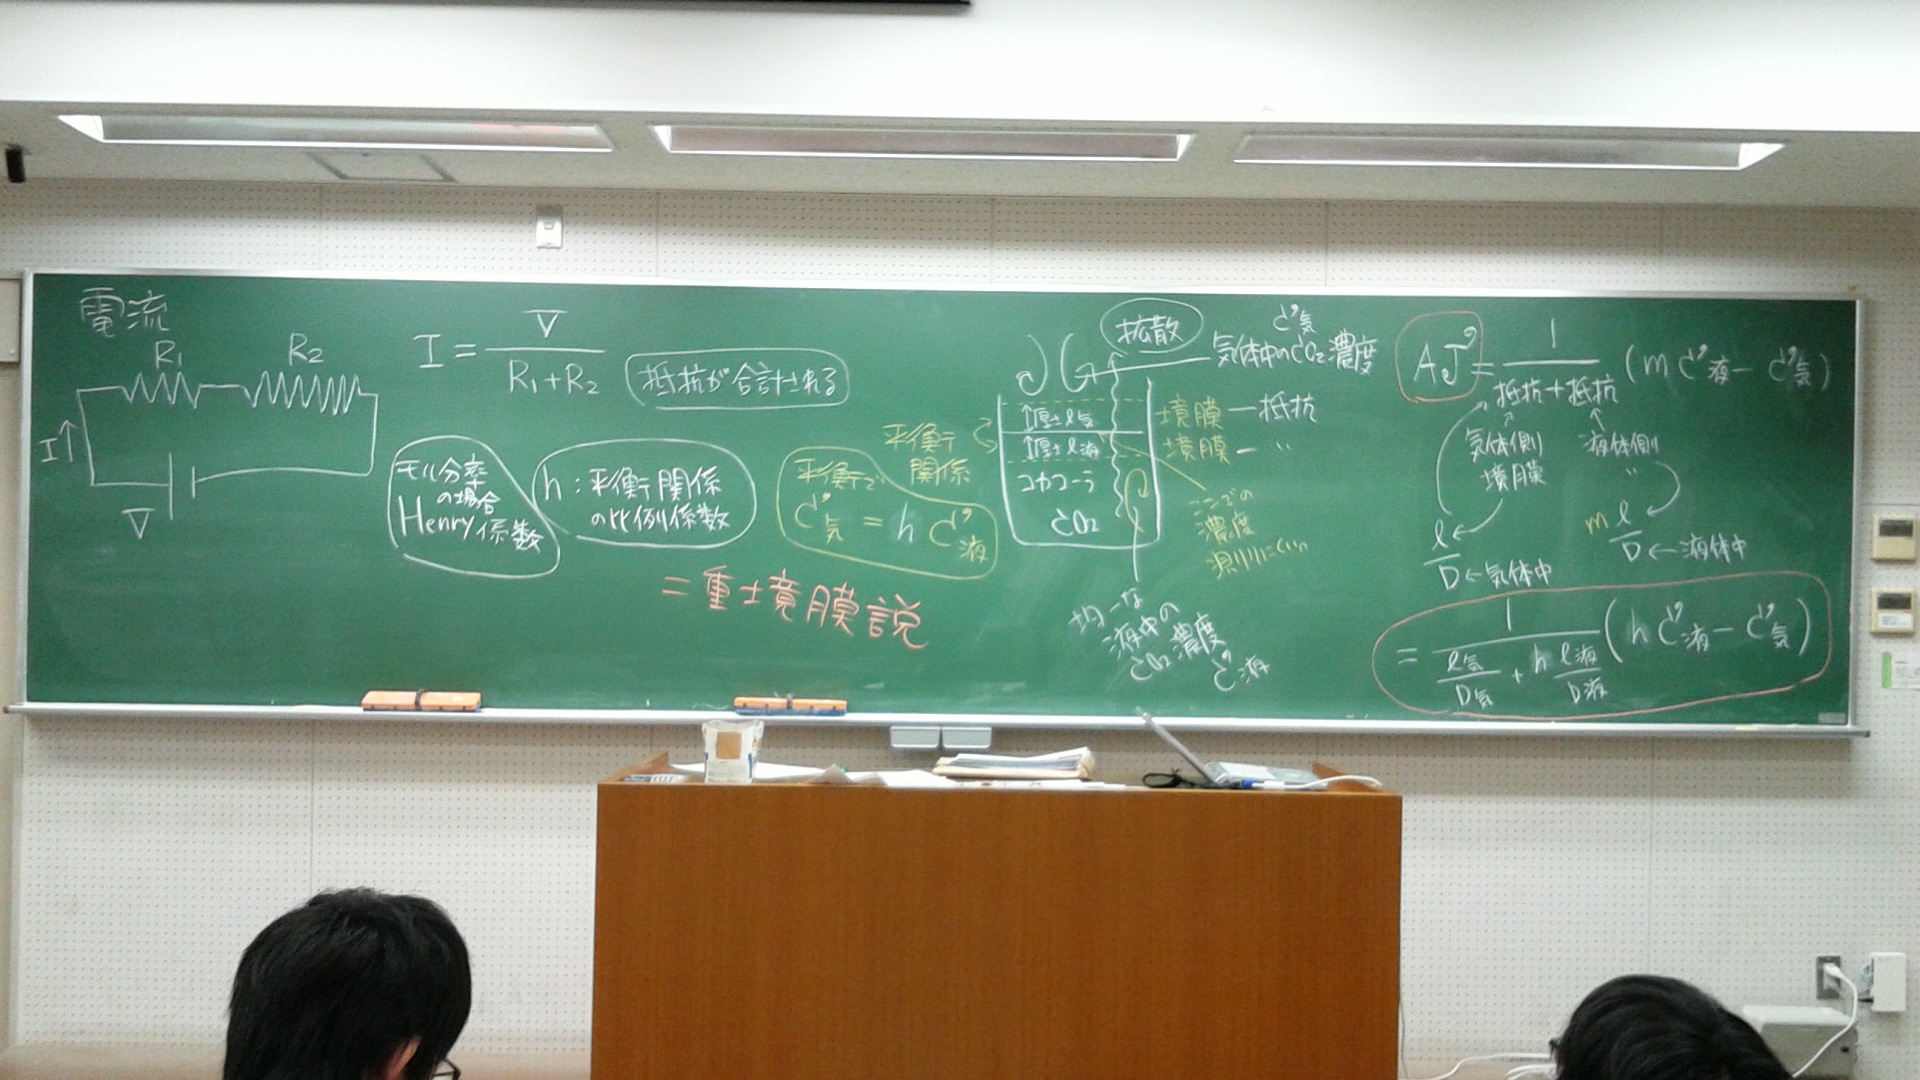 電流
R₁
R₂
I
V
I = V / (R₁+R₂)
抵抗が合計される
モル分率
の場合
Henry係数
h:平衡関係
の比例係数
平衡で
C気 = h C液
二重境膜説
平衡
関係
拡散
C気
気体中のCO₂濃度
厚さℓ気
厚さℓ液
コカコーラ
CO₂
境膜ー抵抗
境膜ー 〃
ここでの
濃度
測りにくい
均一な
液中の
CO₂濃度
C液
AJ = 1 / (抵抗+抵抗) (m C液 − C気)
気体側
境膜
液体側
〃
ℓ / D ←気体中
m ℓ / D ←液体中
= 1 / (ℓ気/D気 + h ℓ液/D液) (h C液 − C気)